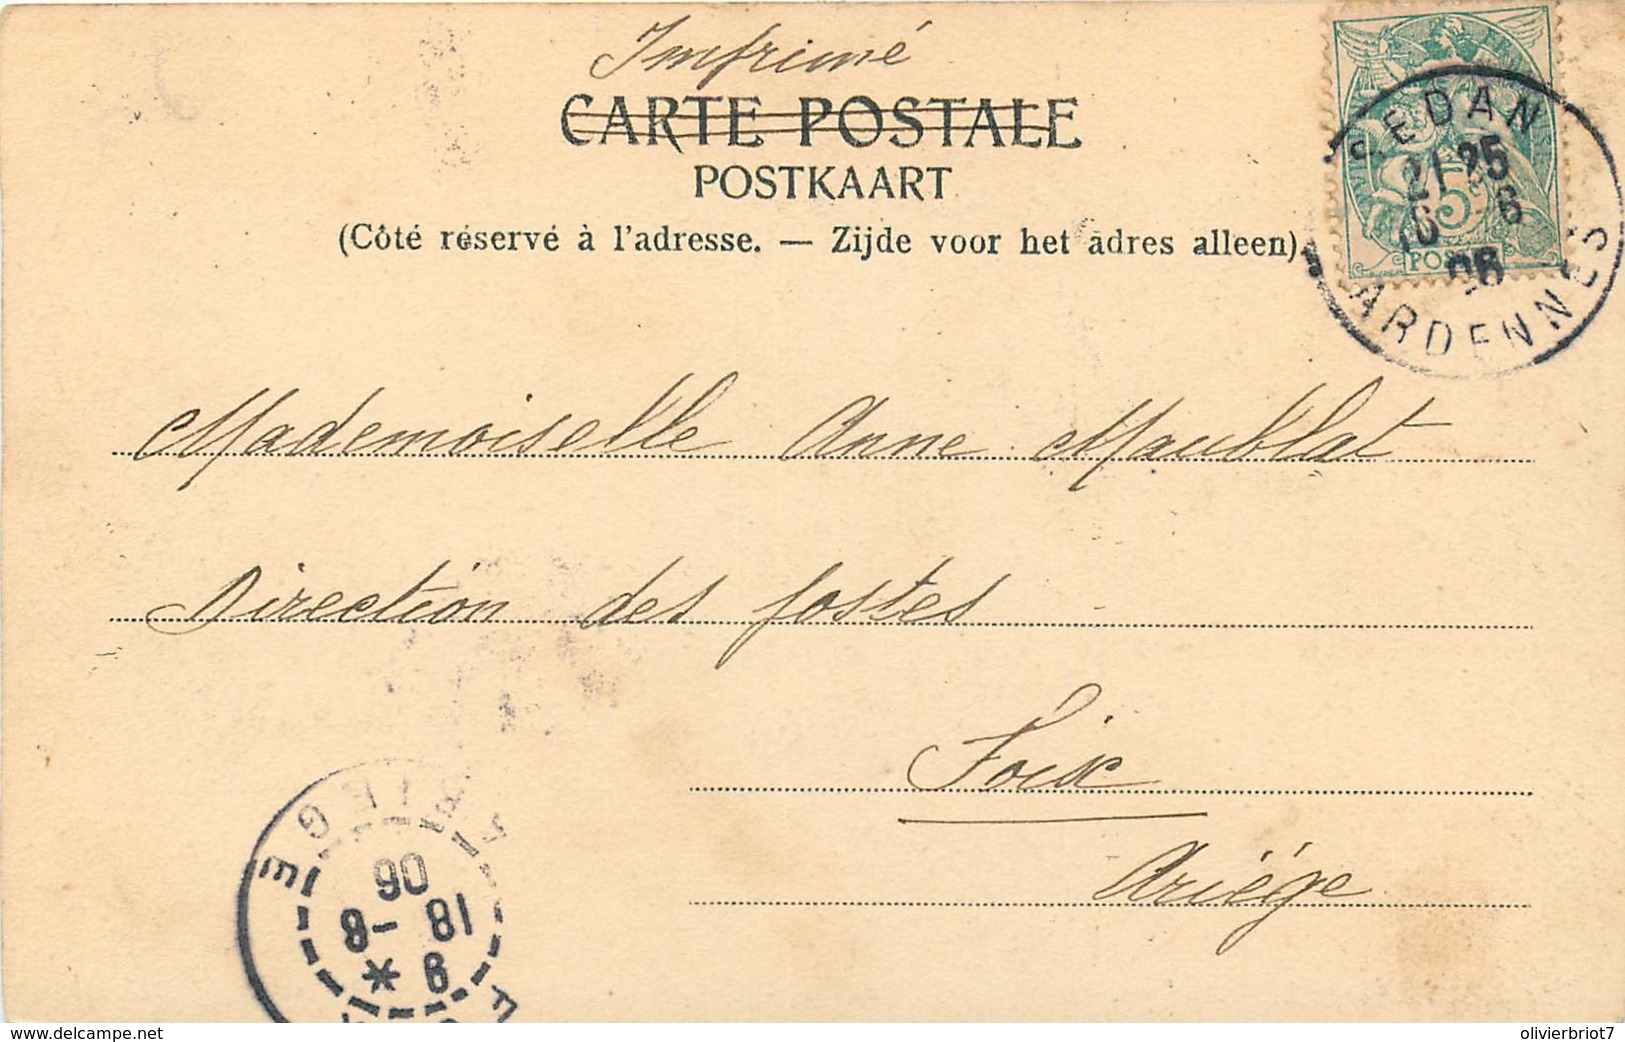 Imprimé
CARTE POSTALE
POSTKAART
(Côté réservé à l'adresse. — Zijde voor het adres alleen)
SEDAN
21 25
6
06
ARDENNES
5
POSTES
Mademoiselle Anne Maublat
Direction des Postes
Foix
Ariége
ARIEGE
06
18 -8
8 *
www.delcampe.net
olivierbriot7